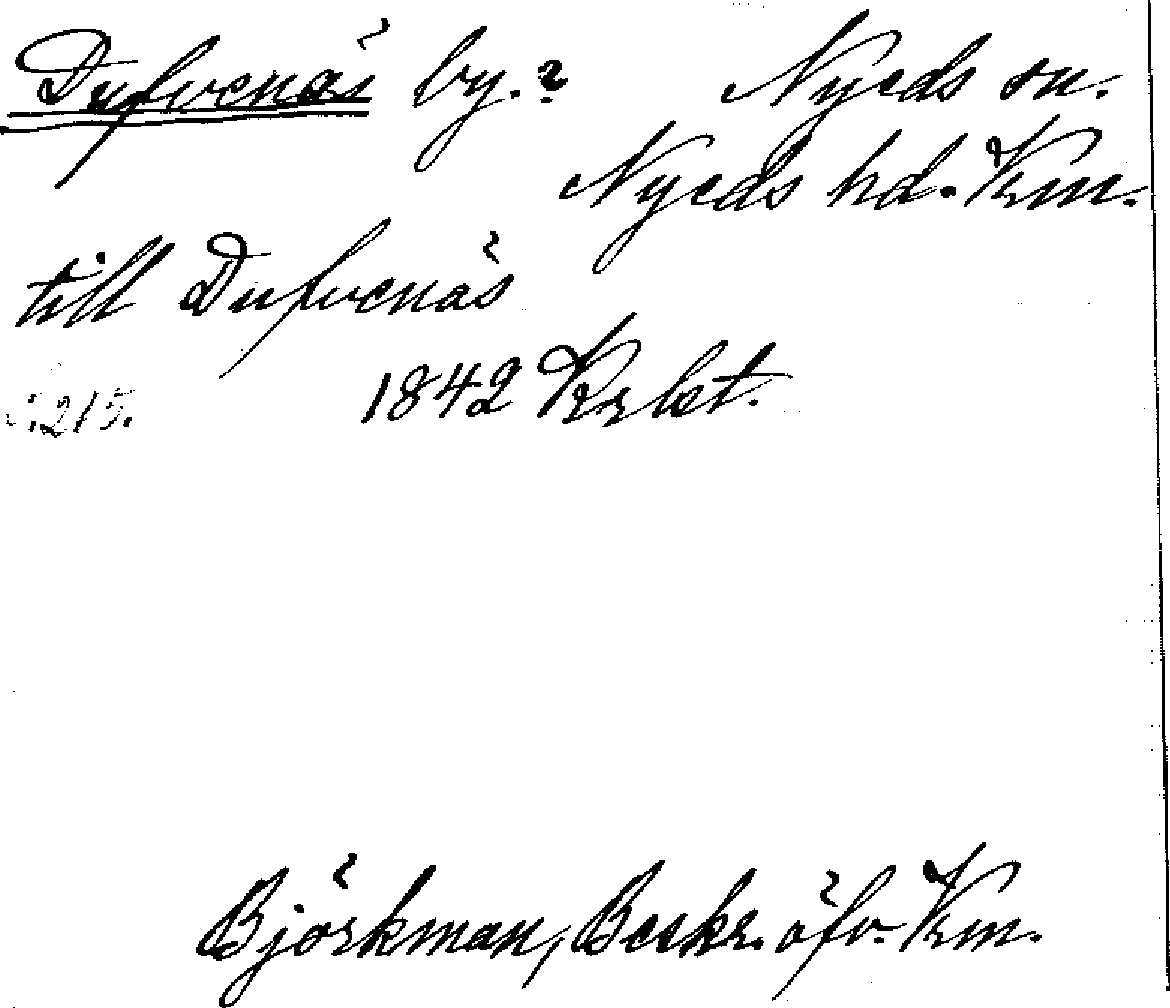 Dufvenäs by.? Nyeds sn.
Nyeds hd. Krm.
till Dufvenäs
1842 Krlst.
:215.
Björkman, Beskr. öfv. Vrm.